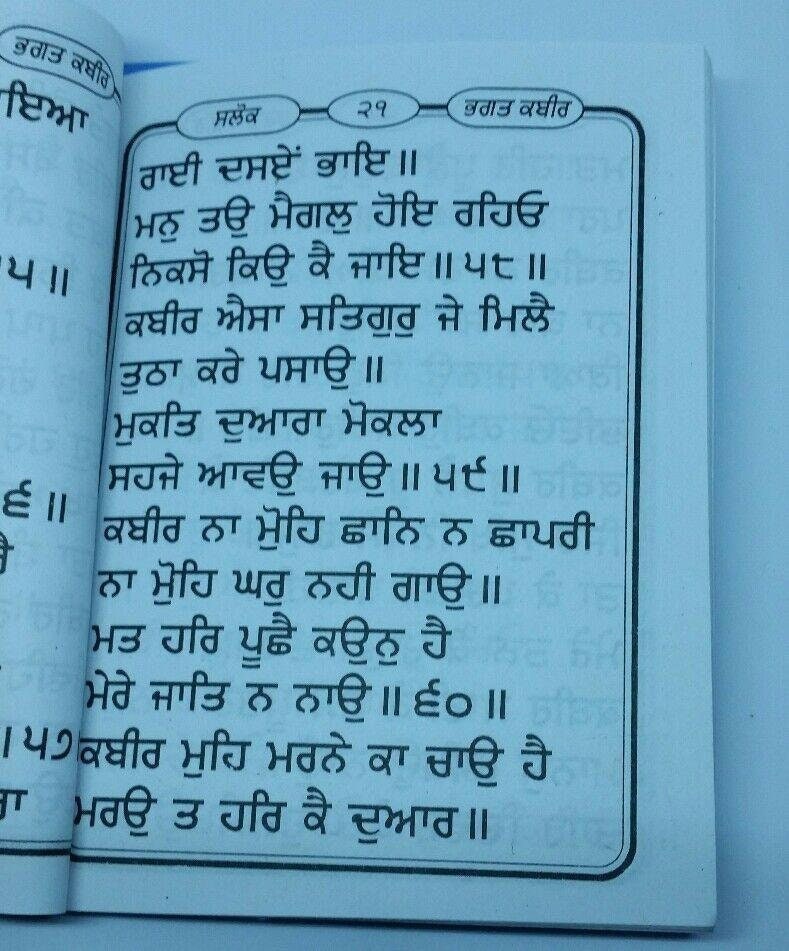 ਭਗਤ ਕਬੀਰ
ਇਆ
੫॥
੬॥
੫੭
ਸਲੋਕ ੨੧ ਭਗਤ ਕਬੀਰ
ਰਾਈ ਦਸਏਂ ਭਾਇ॥
ਮਨੁ ਤਉ ਮੈਗਲੁ ਹੋਇ ਰਹਿਓ
ਨਿਕਸੋ ਕਿਉ ਕੈ ਜਾਇ॥੫੮॥
ਕਬੀਰ ਐਸਾ ਸਤਿਗੁਰੁ ਜੇ ਮਿਲੈ
ਤੁਠਾ ਕਰੇ ਪਸਾਉ॥
ਮੁਕਤਿ ਦੁਆਰਾ ਮੋਕਲਾ
ਸਹਜੇ ਆਵਉ ਜਾਉ॥੫੯॥
ਕਬੀਰ ਨਾ ਮੋੁਹਿ ਛਾਨਿ ਨ ਛਾਪਰੀ
ਨਾ ਮੋੁਹਿ ਘਰੁ ਨਹੀ ਗਾਉ॥
ਮਤ ਹਰਿ ਪੂਛੈ ਕਉਨੁ ਹੈ
ਮੇਰੇ ਜਾਤਿ ਨ ਨਾਉ॥੬੦॥
ਕਬੀਰ ਮੁਹਿ ਮਰਨੇ ਕਾ ਚਾਉ ਹੈ
ਮਰਉ ਤ ਹਰਿ ਕੈ ਦੁਆਰ॥